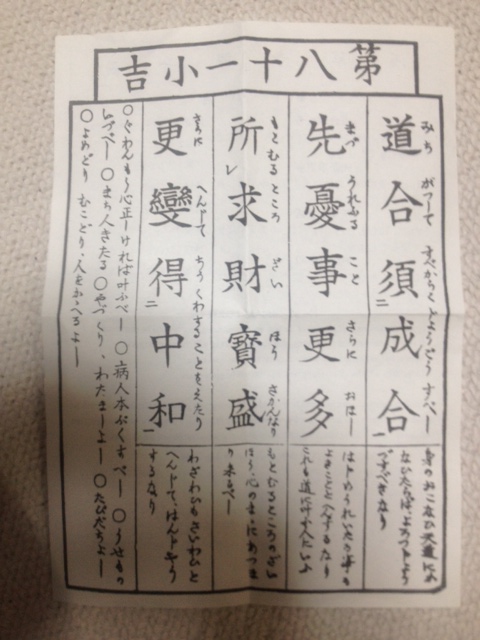 第八十一小吉
道合須成合
みち がつして すべからくじようごうすべし
二 一
身のおこなひ天道にかなひたらば、よろづじやうじゆすべきなり
先憂事更多
まづ うれふる こと さらに おほし
はじめうれいたる事もよきことへんずるなり
これも道にかなふ人にいふ
所求財寶盛
もとむるところ ざい ほう さかんなり
レ
もとむるところのざいほう、心のまゝにあつまり来るべし
更變得中和
さらに へんじて ちうくわすることをえたり
二 一
わざわひもさいわひとへんじて、はんじやうするなり
○ぐわんもう心正しければ叶ふべし ○病人本ぷくすべし ○うせもの
いづべし ○まち人きたる ○やづくり、わたましよし ○たびだちよし
○よめどり むことり、人をかゝへるよし